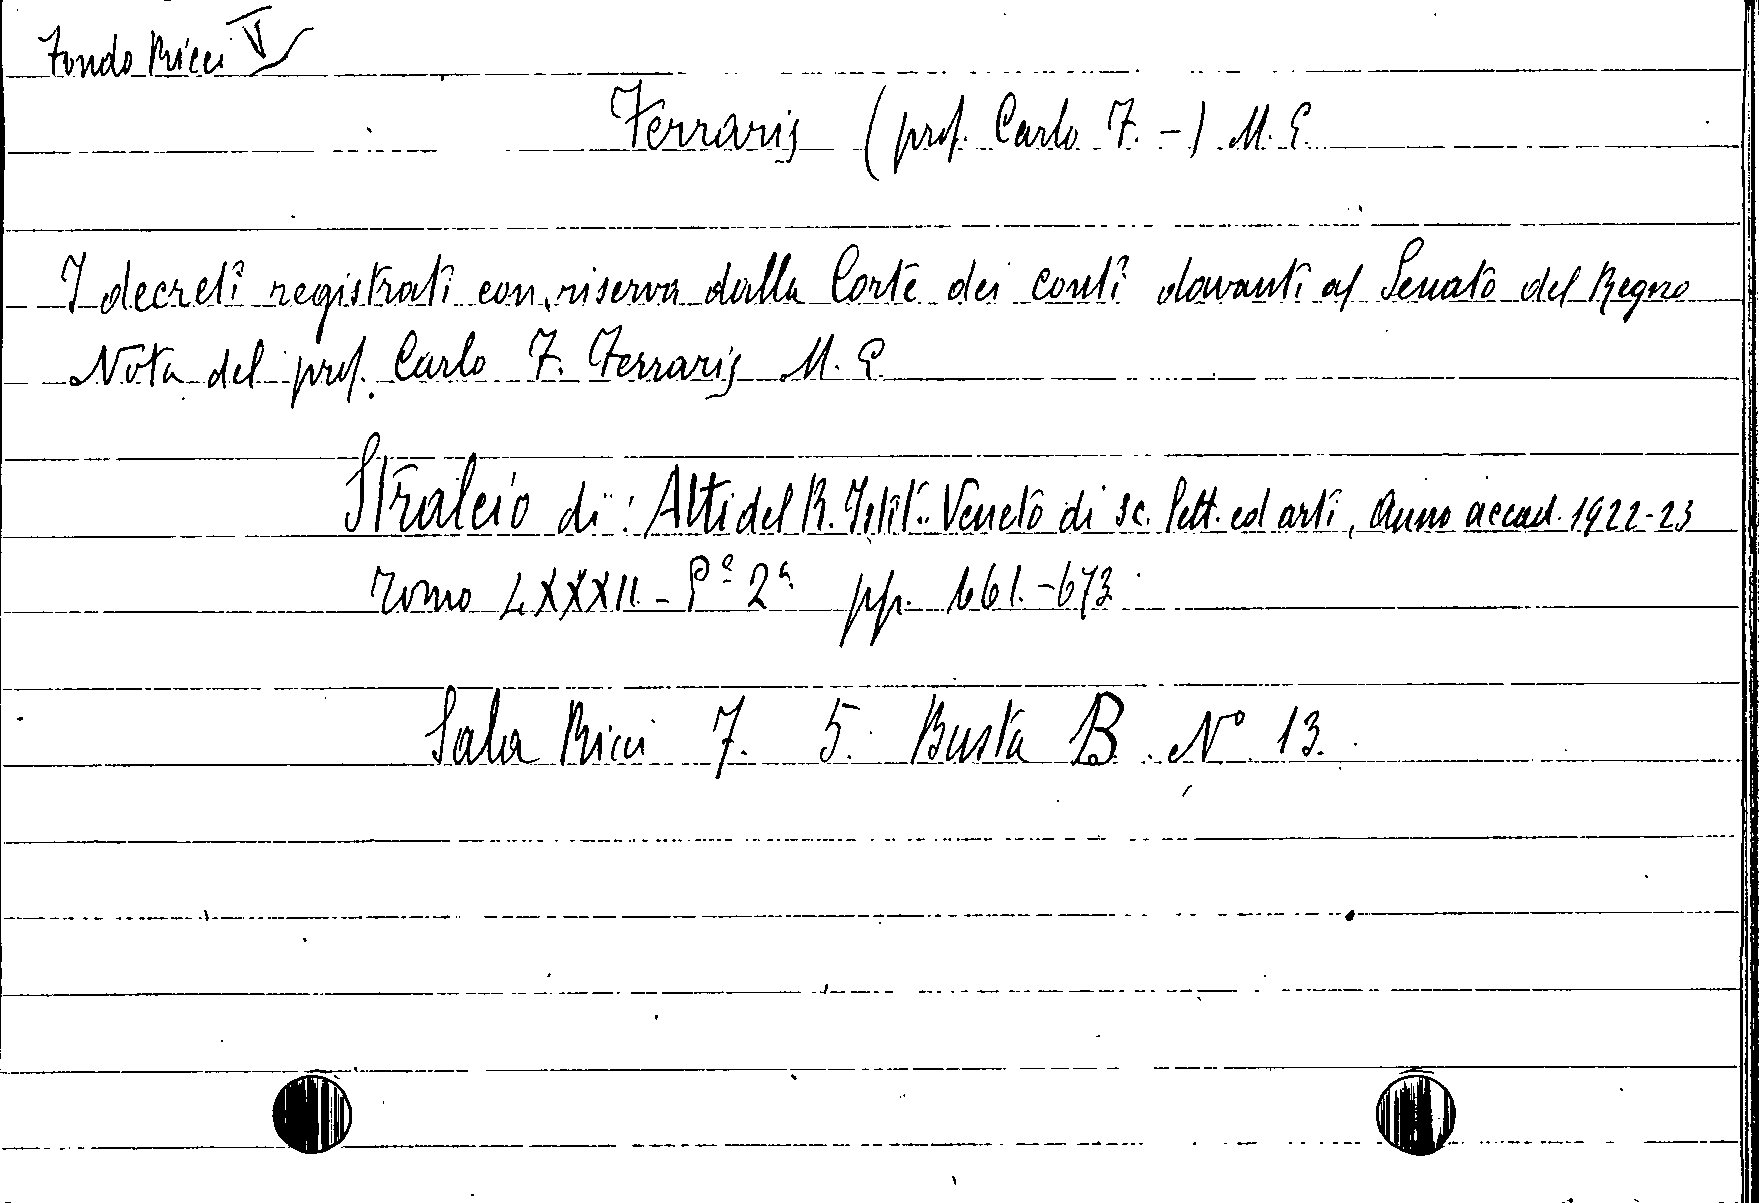 Fondo Ricci V
Ferraris (prof. Carlo F. -) M. E.
I decreti registrati con riserva dalla Corte dei conti davanti al Senato del Regno
Nota del prof. Carlo F. Ferraris M. E.
Stralcio di: Atti del R. Istit. Veneto di sc. lett. ed arti, Anno accad. 1922-23
Tomo LXXXII - Pe 2a pp. 661-673
Sala Ricci 7. 5. Busta B. No 13.